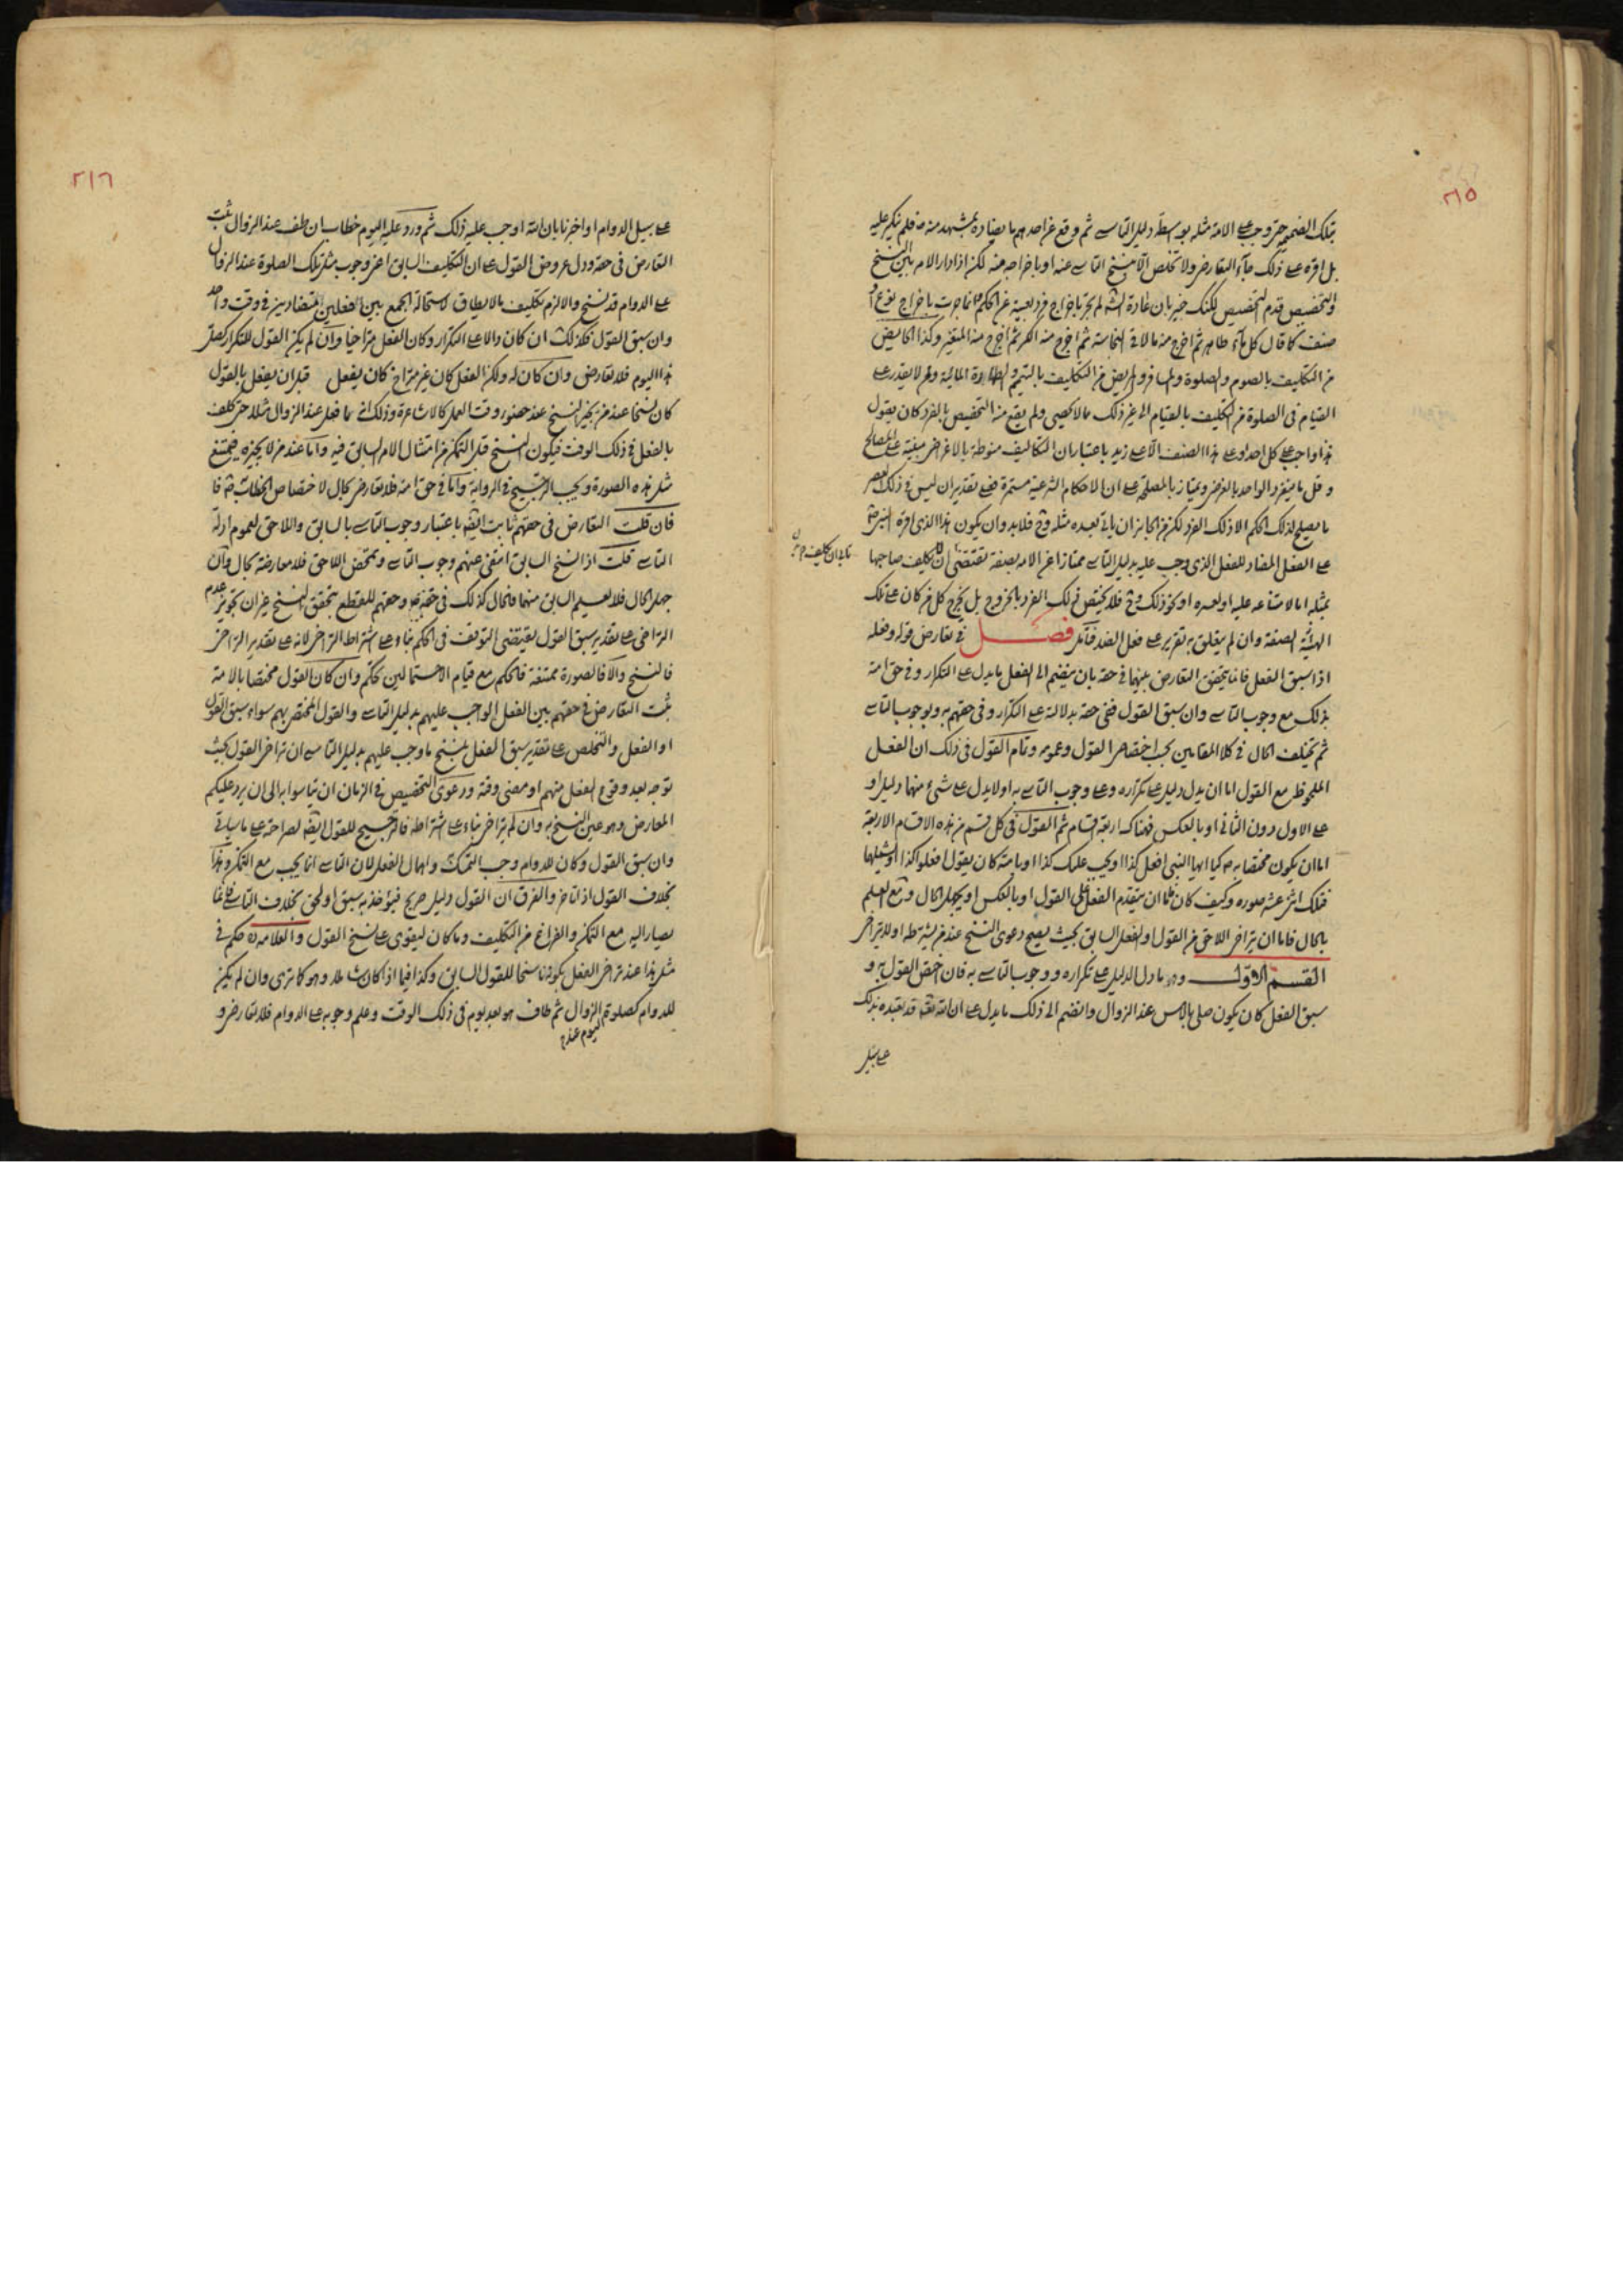 ٢١٥
بتلك الضميمة حتى وجب على الامة مثله بواسطة دليل التاسي ثم وقع عن احدهم ما يضاده بمشهد منه ص فلم ينكر عليه
بل اقره على ذلك جاء التعارض ولا تخلص الا بنسخ التاسي عنه او باخراجه منه لكن اذا دار الامر بين النسخ
والتخصيص قدم التخصيص لكنك خبير بان عادة الشرع لم يجر باخراج فرد بعينه عن الحكم وانما جرت باخراج نوع او
صنف كما قال كل ماء طاهر ثم اخرج منه ما لاقى النجاسة ثم اخرج منه الكر ثم اخرج منه المتغير وكذا الحايض
من التكليف بالصوم والصلوة والمسافر والمريض من التكليف بالتيمم والطهارة المائية ومن لا يقدر على
القيام في الصلوة من التكليف بالقيام الى غير ذلك مما لا يحصى ولم يقع منه التخصيص بالفرد كان يقول
هذا واجب على كل احد او على هذا الصنف الا على زيد باعتبار ان التكاليف منوطة بالاغراض مبنية على المصالح
وقل ما ينفرد الواحد بالغرض ويمتاز بالمصلحة على ان الاحكام الشرعية مستمرة فعلى تقدير ان ليس في ذلك العصر
ما يصلح لذلك الحكم الا ذلك الفرد لكن من الجايز ان ياتي بعده مثله وح فلا بد وان يكون هذا الذي اقره النبي ص
على الفعل المضاد للفعل الذي وجب عليه بدليل التاسي ممتازا عن الامة بصفة تقتضي ان لا يكلف صاحبها
بمثله اما لامتناعه عليه او لعسره او نحو ذلك وح فلا يختص ذلك الفرد بالخروج بل يخرج كل من كان على تلك
الهيئة الصفة وان لم يتعلق به تقرير على فعل الضد فتامل فصل في تعارض قوله وفعله
اذا سبق الفعل فانما يتحقق التعارض بينهما في حقه بان ينضم الى الفعل ما يدل على التكرار وفي حق امته
بذلك مع وجوب التاسي وان سبق القول ففي حقه بدلالته على التكرار وفي حقهم به وبوجوب التاسي
ثم يختلف الحال في كلا المقامين بحسب اختصاص القول وعمومه وتمام القول في ذلك ان الفعل
الملحوظ مع القول اما ان يدل دليل على تكراره وعلى وجوب التاسي به او لا يدل على شيء منهما دليل او
على الاول دون الثاني او بالعكس فهناك اربعة اقسام ثم القول في كل قسم من هذه الاقسام الاربعة
اما ان يكون مختصا به ص كيا ايها النبي افعل كذا او يجب عليك كذا او بامته كان يقول افعلوا كذا او يشملها
فتلك اثنى عشر صورة وكيف كان فاما ان يتقدم الفعل على القول او بالعكس او يجهل الحال ومع العلم
بالحال فاما ان يتراخى اللاحق من القول او الفعل السابق بحيث يصح دعوى النسخ عند من يشترطه او لا يتراخى
القسم الاول وهو ما دل الدليل على تكراره ووجوب التاسي به فان اختص القول به و
سبق الفعل كان يكون صلى بالامس عند الزوال وانضم الى ذلك ما يدل على ان الله تعه قد تعبده بذلك
على سبيل
٢١٦
على سبيل الدوام او اخبرنا بان الله اوجب عليه ذلك ثم ورد عليه اليوم خطاب ان طف عند الزوال ثبت
التعارض في حقه ودل عروض القول على ان التكليف السابق اعني وجوب مثل تلك الصلوة عند الزوال
على الدوام قد نسخ والا لزم تكليف ما لا يطاق لاستحالة الجمع بين الفعلين المتضادين في وقت واحد
وان سبق القول فكذلك ان كان دالا على التكرار وكان الفعل متراخيا وان لم يكن القول للتكرار كصل
هذا اليوم فلا تعارض وان كان له ولكن الفعل كان غير متراخ كان يفعل قبل ان يفعل بالقول
كان نسخا عند من يجيز النسخ عند حضور وقت العمل كالاشاعرة وذلك انه ما فعل عند الزوال مثلا حتى كلف
بالفعل في ذلك الوقت فيكون النسخ قبل التمكن من امتثال الامر السابق فيه واما عند من لا يجيزه فيمتنع
مثل هذه الصورة ويجب الترجيح في الرواية واما في حق امته فلا تعارض بحال لاختصاص الخطاب به ص فا
فان قلت التعارض في حقهم ثابت ايضه باعتبار وجوب التاسي بالسابق واللاحق لعموم ادلة
التاسي قلت اذا نسخ السابق انتفى عنهم وجوب التاسي وتمحض اللاحق فلا معارضة بحال وان
جهل الحال فلا تعليم السابق منهما فالحال كذلك في حقه ص وحقهم للقطع بتحقق النسخ غير ان تجويز عدم
التراخي على تقدير سبق القول يقتضي التوقف في الحكم بناء على اشتراط التراخي لانه على تقدير التراخي
فالنسخ والا فالصورة ممتنعة فالحكم مع قيام الاحتمالين تحكم وان كان القول مختصا بالامة
ثبت التعارض في حقهم بين الفعل الواجب عليهم بدليل التاسي والقول المختص بهم سواء سبق القول
او الفعل والتخلص على تقدير سبق الفعل بنسخ ما وجب عليهم بدليل التاسي ان تراخى القول بحيث
توجه بعد وقوع الفعل منهم او مضى وقته ودعوى التخصيص في الزمان ان يتاسوا به الى ان يرد عليكم
المعارض وهو عين النسخ به وان لم يتراخ بناء على اشتراطه فالترجيح للقول ايضه لصراحته على ما ياتي
وان سبق القول وكان للدوام وجب التمسك واهمال الفعل لان التاسي انما يجب مع التمكن وهذا
بخلاف القول اذا تاخر والفرق ان القول دليل صريح فيؤخذ به سبق او لحق بخلاف التاسي فانما
يصار اليه مع التمكن والفراغ من التكليف وما كان ليقوى على نسخ القول والعلامة ره حكم في
مثل هذا عند تراخي الفعل بكونه ناسخا للقول السابق وكذا فيما اذا كان شاملا وهو كما ترى وان لم يكن
للدوام كصلوة الزوال ثم طاف هو بعد يوم في ذلك الوقت وعلم وجوبه على الدوام فلا تعارض و